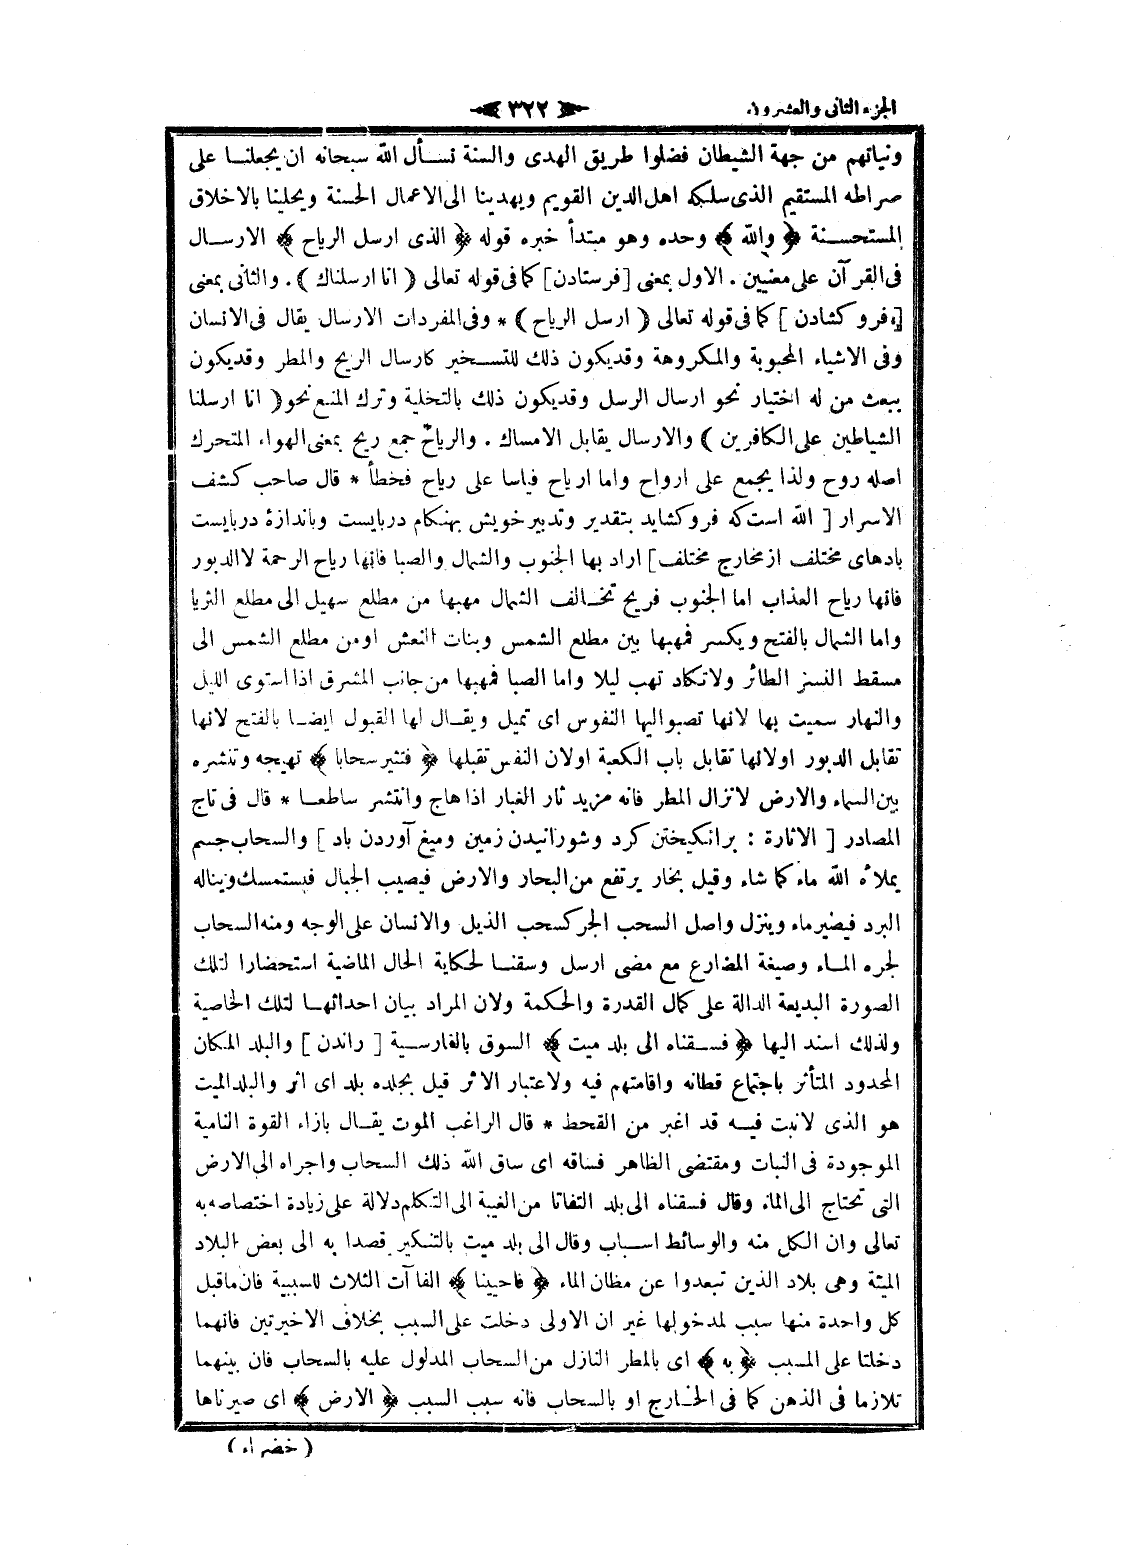 الجزء الثانى والعشرون
﴿ ٣٢٢ ﴾
ونياتهم من جهة الشيطان فضلوا طريق الهدى والسنة نسأل الله سبحانه ان يجعلنا على
صراطه المستقيم الذى سلكه اهل الدين القويم ويهدينا الى الاعمال الحسنة ويحلينا بالاخلاق
المستحسنة ﴿ والله ﴾ وحده وهو مبتدأ خبره قوله ﴿ الذى ارسل الرياح ﴾ الارسال
فى القرآن على معنيين . الاول بمعنى [فرستادن] كما فى قوله تعالى ( انا ارسلناك ) . والثانى بمعنى
[فرو كشادن ] كما فى قوله تعالى ( ارسل الرياح ) * وفى المفردات الارسال يقال فى الانسان
وفى الاشياء المحبوبة والمكروهة وقديكون ذلك للتسخير كارسال الريح والمطر وقديكون
ببعث من له اختيار نحو ارسال الرسل وقديكون ذلك بالتخلية وترك المنع نحو ( انا ارسلنا
الشياطين على الكافرين ) والارسال يقابل الامساك . والرياح جمع ريح بمعنى الهواء المتحرك
اصله روح ولذا يجمع على ارواح واما ارياح قياسا على رياح فخطأ * قال صاحب كشف
الاسرار [ الله است كه فرو كشايد بتقدير وتدبير خويش بهنكام دربايست وباندازهٔ دربايست
بادهاى مختلف از مخارج مختلف] اراد بها الجنوب والشمال والصبا فانها رياح الرحمة لا الدبور
فانها رياح العذاب اما الجنوب فريح تخالف الشمال مهبها من مطلع سهيل الى مطلع الثريا
واما الشمال بالفتح ويكسر فمهبها بين مطلع الشمس وبنات النعش اومن مطلع الشمس الى
مسقط النسر الطائر ولاتكاد تهب ليلا واما الصبا فمهبها من جانب المشرق اذا استوى الليل
والنهار سميت بها لانها تصبو اليها النفوس اى تميل ويقال لها القبول ايضا بالفتح لانها
تقابل الدبور اولانها تقابل باب الكعبة اولان النفس تقبلها ﴿ فتثير سحابا ﴾ تهيجه وتنشره
بين السماء والارض لانزال المطر فانه مزيد ثار الغبار اذا هاج وانتشر ساطعا * قال فى تاج
المصادر [ الاثارة : برانكيختن كرد وشورانيدن زمين وميغ آوردن باد ] والسحاب جسم
يملأه الله ماء كما شاء وقيل بخار يرتفع من البحار والارض فيصيب الجبال فيستمسك ويناله
البرد فيصير ماء وينزل واصل السحب الجر كسحب الذيل والانسان على الوجه ومنه السحاب
لجره الماء وصيغة المضارع مع مضى ارسل وسقنا لحكاية الحال الماضية استحضارا لتلك
الصورة البديعة الدالة على كمال القدرة والحكمة ولان المراد بيان احداثها لتلك الخاصية
ولذلك اسند اليها ﴿ فسقناه الى بلد ميت ﴾ السوق بالفارسية [ راندن ] والبلد المكان
المحدود المتأثر باجتماع قطانه واقامتهم فيه ولاعتبار الاثر قيل بجلده بلد اى اثر والبلد الميت
هو الذى لانبت فيه قد اغبر من القحط * قال الراغب الموت يقال بازاء القوة النامية
الموجودة فى النبات ومقتضى الظاهر فساقه اى ساق الله ذلك السحاب واجراه الى الارض
التى تحتاج الى الماء وقال فسقناه الى بلد التفاتا من الغيبة الى التكلم دلالة على زيادة اختصاصه به
تعالى وان الكل منه والوسائط اسباب وقال الى بلد ميت بالتنكير قصدا به الى بعض البلاد
الميتة وهى بلاد الذين تبعدوا عن مظان الماء ﴿ فاحيينا ﴾ الفاآت الثلاث للسببية فان ماقبل
كل واحدة منها سبب لمدخولها غير ان الاولى دخلت على السبب بخلاف الاخيرتين فانهما
دخلتا على المسبب ﴿ به ﴾ اى بالمطر النازل من السحاب المدلول عليه بالسحاب فان بينهما
تلازما فى الذهن كما فى الخارج او بالسحاب فانه سبب السبب ﴿ الارض ﴾ اى صيرناها
( خضراء )